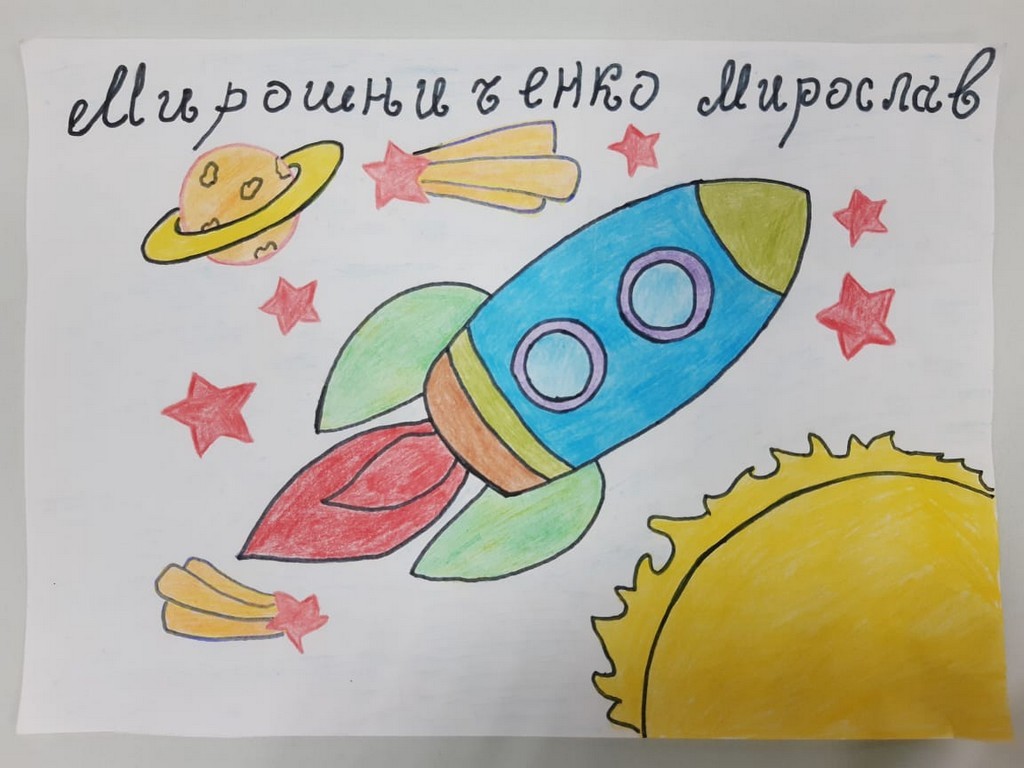 Мирошниченко Мирослав